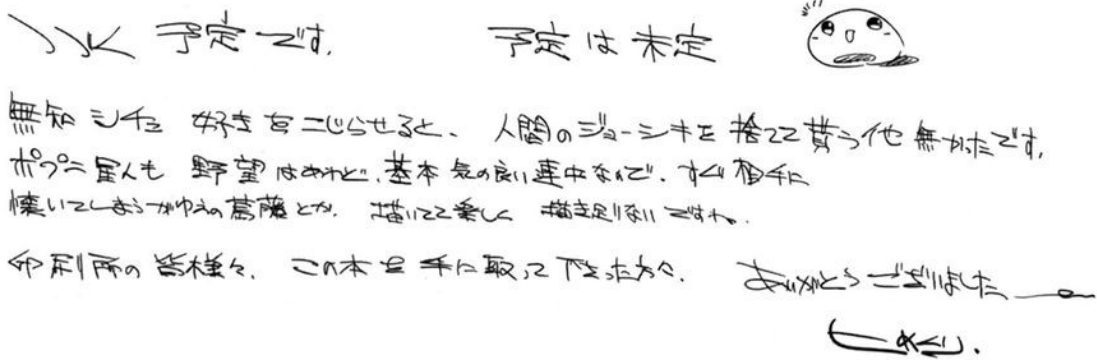 予定です。 予定は未定
無知シチュ 好きをこじらせると、人間のジョーシキを捨てて貰う他無かったです。
ポプニ星人も 野望はあれど、基本気の良い連中なので、すぐ相手に
懐いてしまうがゆえの葛藤とか、描いてて楽しく 描き足りないですね。
印刷所の皆様々、この本を手に取って下さった方々、ありがとうございました